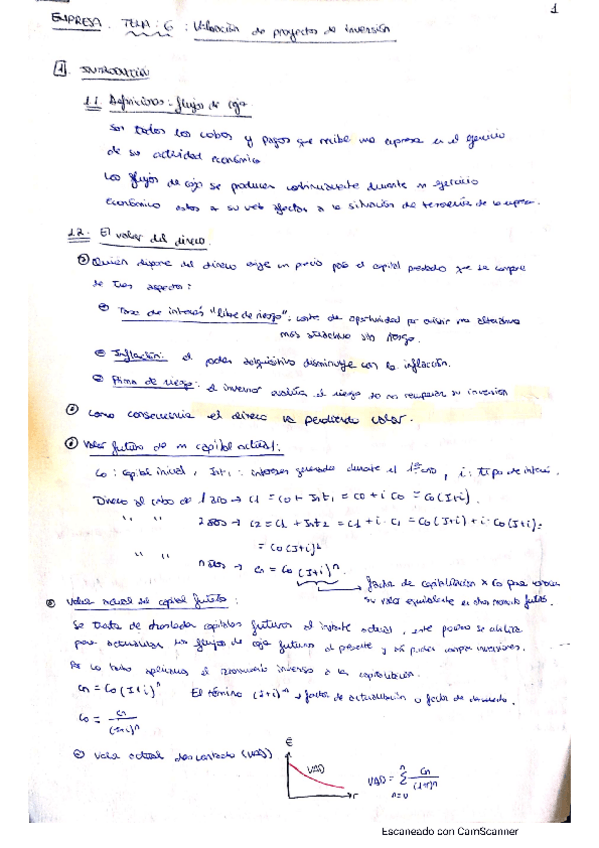 1
EMPRESA. TEMA: 6: Valoración de proyectos de inversión
1 INTRODUCCIÓN
1.1. Definiciones: flujos de caja
Son todos los cobros y pagos que recibe una empresa en el ejercicio
de su actividad económica
Los flujos de caja se producen continuamente durante un ejercicio
económico estos a su vez afectan a la situación de tesorería de la empresa.
1.2. El valor del dinero.
Quien dispone del dinero exige un precio por el capital prestado que se compone
de tres aspectos:
Tasa de interés "libre de riesgo": coste de oportunidad por existir una alternativa
más atractiva sin riesgo.
Inflación: el poder adquisitivo disminuye con la inflación.
Prima de riesgo: el inversor evalúa el riesgo de no recuperar su inversión
Como consecuencia el dinero va perdiendo valor.
Valor futuro de un capital actual:
C0: capital inicial, Int1: intereses generados durante el 1er año, i: tipo de interés.
Dinero al cabo de 1 año → C1 = C0 + Int1 = C0 + i C0 = C0(1+i).
" " 2 años → C2 = C1 + Int2 = C1 + i · C1 = C0(1+i) + i · C0(1+i) =
= C0(1+i)²
" " n años → Cn = C0(1+i)ⁿ.
factor de capitalización x C0 para
su valor equivalente en otro momento futuro.
Valor actual del capital futuro:
Se trata de trasladar capitales futuros al instante actual, este proceso se utiliza
para actualizar los flujos de caja futuros al presente y así poder comparar inversiones.
Por lo tanto aplicamos el inverso a la capitalización.
Cn = C0(1+i)ⁿ El término (1+i)⁻ⁿ → factor de actualización o factor de descuento.
C0 = Cn/(1+i)ⁿ
Valor actual descontado (VAD)
€
VAD
r
VAD = Σ Cn/(1+r)ⁿ
n
n=0
Escaneado con CamScanner